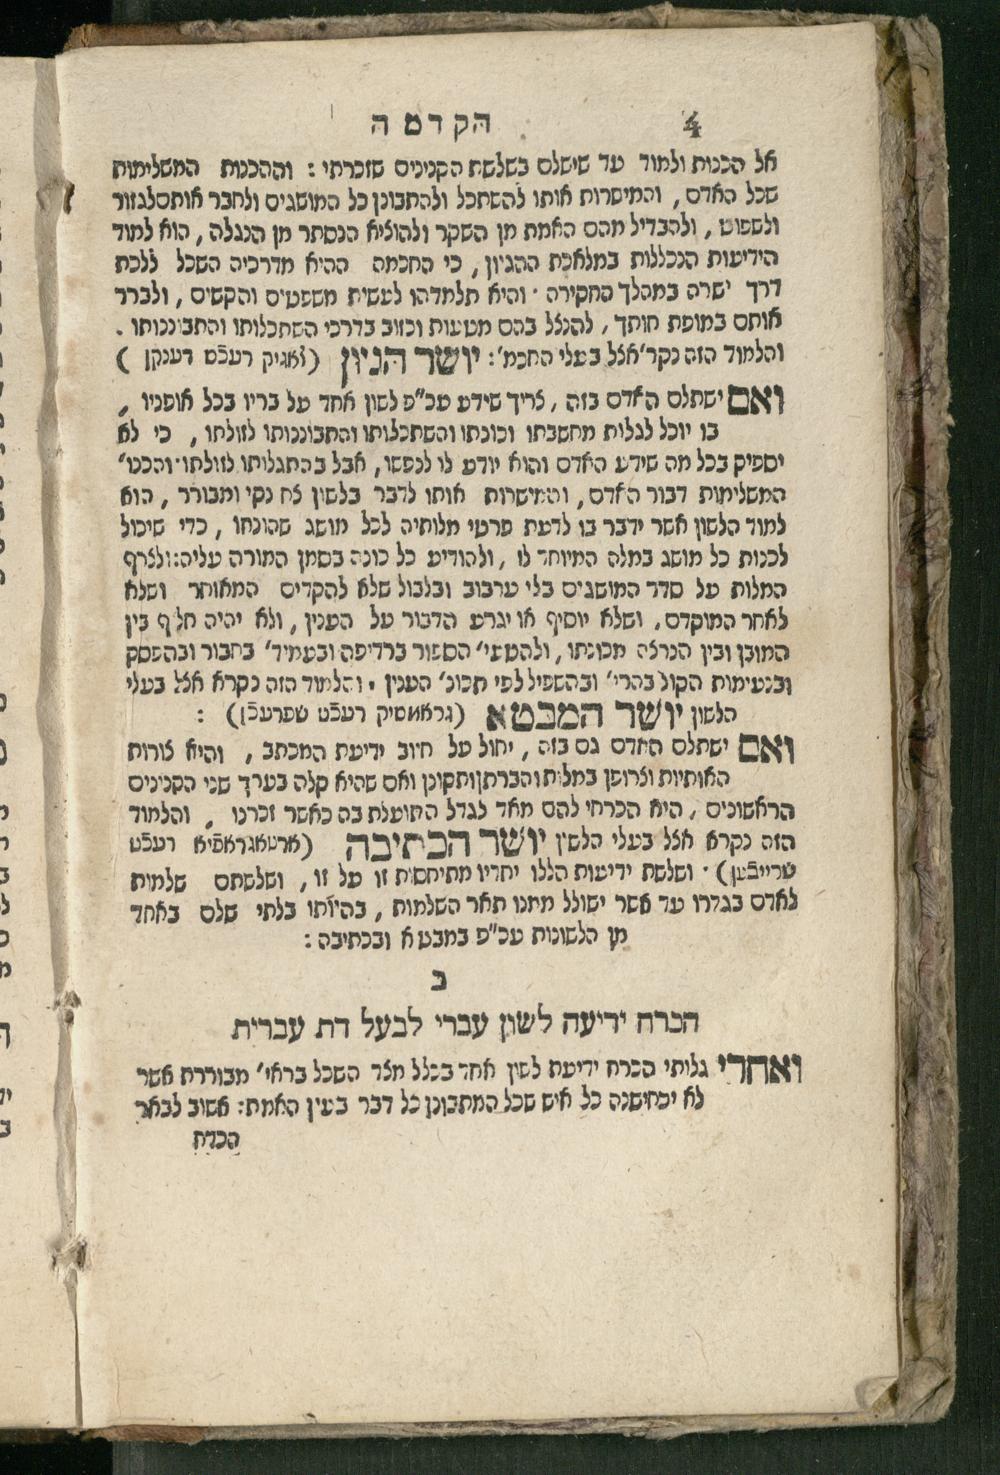 4 הקדמה
אל הכנות ולמוד עד שישלם בשלשת הקנינים שזכרתי : וההכנות המשלימות
שכל האדם , והמישרות אותו להשתכל ולהתבונן כל המושגים ולחבר אותם לגזור
ולשפוט , ולהבדיל מהם האמת מן השקר ולהוציא הנסתר מן הנגלה , הוא למוד
הידיעות הנכללות במלאכת ההגיון , כי החכמה ההיא מדרכיה השכל ללכת
דרך ישרה במהלך החקירה · והיא תלמדהו לעשות משפטים והקשים , ולברר
אותם במופת חותך , להנצל בהם מטעות וכזוב בדרכי השתכלותו והתבוננותו .
והלמוד הזה נקר' אצל בעלי החכמ' : יושר הגיון (לאגיק רעכֿט דענקן )
ואם ישתלם האדם בזה , צריך שידע עכ"פ לשון אחד על בריו בכל אופניו ,
בו יוכל לגלות מחשבתו וכונתו והשתכלותו והתבוננותו לזולתו , כי לא
יספיק בכל מה שידע האדם והוא יודע לו לנפשו , אבל בהתגלותו לזולתו · והכנו'
המשלימות דבור האדם , והמישרות אותו לדבר בלשון צח נקי ומבורר , הוא
למוד הלשון אשר ידבר בו לדעת פרטי מלותיה לכל מושג שהונחו , כדי שיכול
לכנות כל מושג במלה המיוחד לו , ולהודיע כל כונה בסמן המורה עליה : ולצרף
המלות על סדר המושגים בלי ערבוב ובלבול שלא להקדים המאוחר ושלא
לאחר המוקדם , ושלא יוסיף או יגרע הדבור על הענין , ולא יהיה חלוף בין
המובן ובין הנרצה מכונתו , ולהטעי' הספור ברדיפה ובעמיד' בחבור ובהפסק
ובנעימות הקול בהרי' ובהשפיל לפי תכונ' הענין . והלמוד הזה נקרא אצל בעלי
הלשון יושר המבטא (גראממטיק רעכֿט שפרעכֿן) :
ואם ישתלם האדם גם בזה , יחול על חיוב ידיעת המכתב , והיא צורות
האותיות וצרופן במלות והברתן ותקונן ואם שהיא קלה בערך שני הקנינים
הראשונים , היא הכרחי להם מאד לגדל התועלת בה כאשר זכרנו , והלמוד
הזה נקרא אצל בעלי הלשון יושר הכתיבה (ארטאגראפֿיא רעכֿט
שרייבֿען) · ושלשת ידיעות הללו יחדיו מתיחסות זו על זו , ושלשתם שלמות
לאדם בגדרו עד אשר ישולל ממנו תאר השלמות , בהיותו בלתי שלם באחד
מן הלשונות עכ"פ במבטא ובכתיבה :
ב
הכרח ידיעה לשון עברי לבעל דת עברית
ואחרי גלותי הכרח ידיעת לשון אחד בכלל מצד השכל בראי' מבוררת אשר
לא יכחישנה כל איש שכל המתבונן כל דבר בעין האמת : אשוב לבאר
הכרח